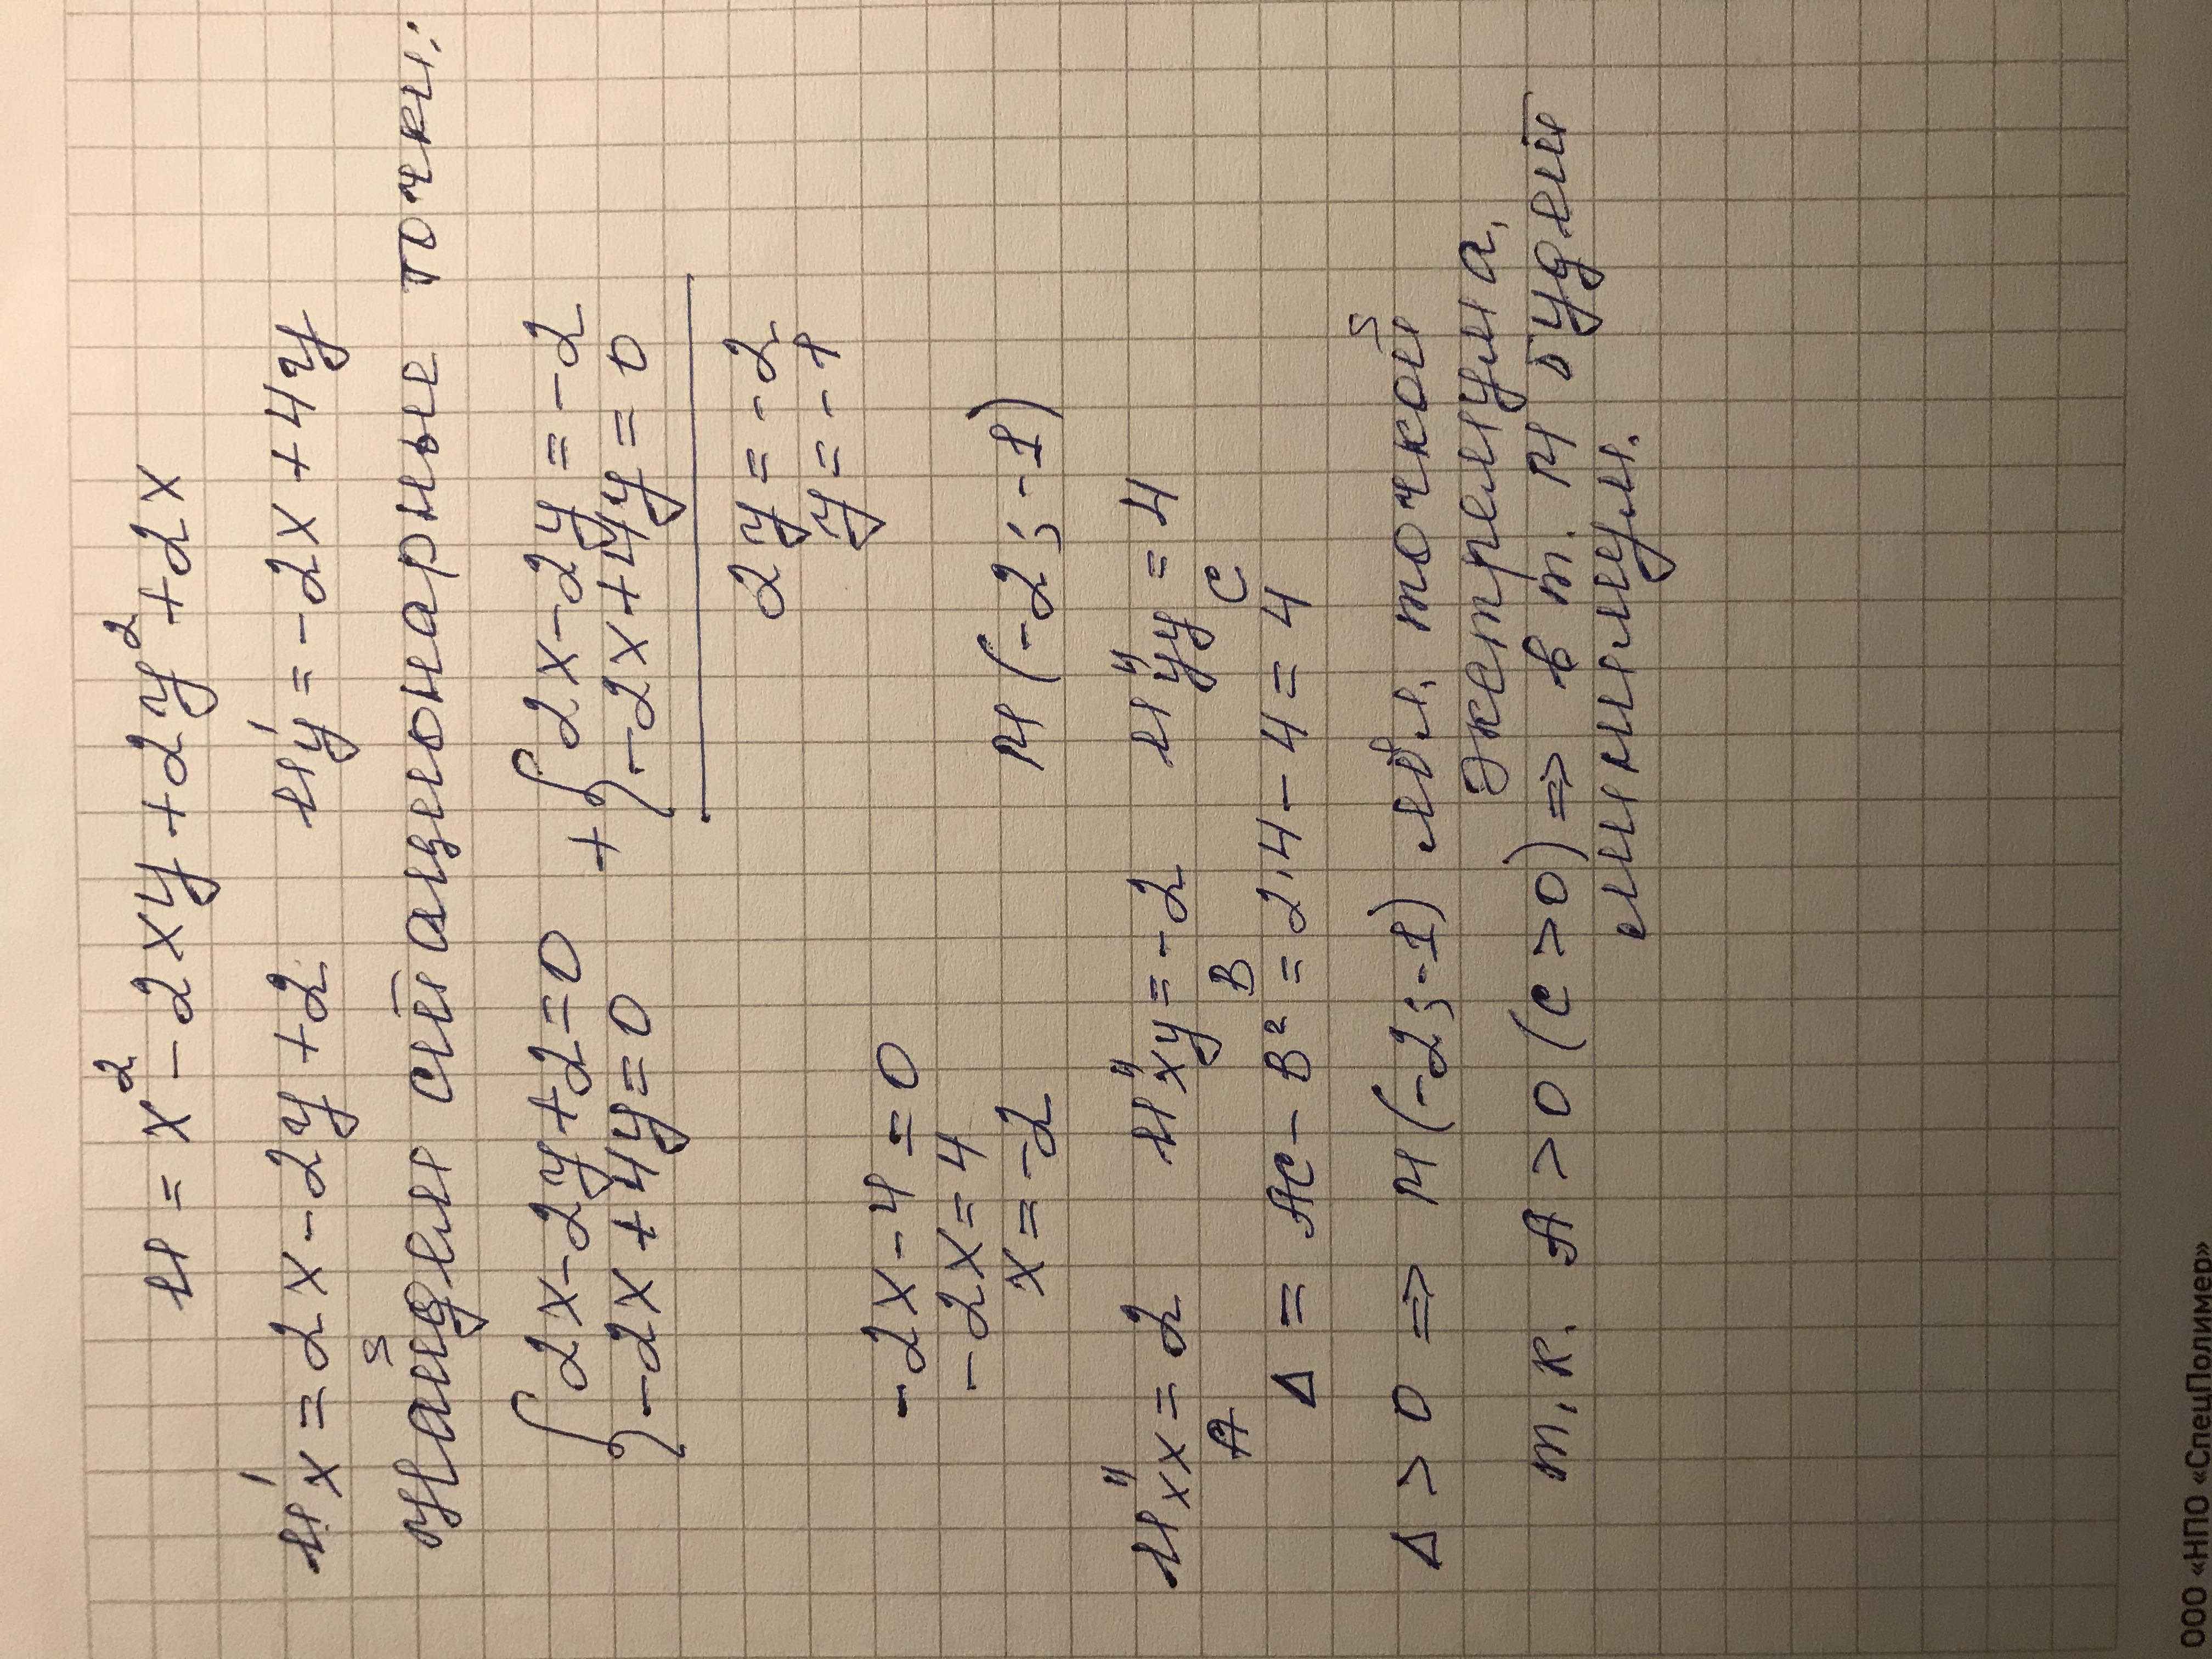 u = x² - 2xy + 2y² + 2x
u'x = 2x - 2y + 2 u'y = -2x + 4y
Найдем стационарные точки:
{ 2x - 2y + 2 = 0 + { 2x - 2y = -2
-2x + 4y = 0 -2x + 4y = 0
2y = -2
y = -1
-2x - 4 = 0
-2x = 4
x = -2 M (-2; -1)
u''xx = 2 u''xy = -2 u''yy = 4
A B C
Δ = AC - B² = 2·4 - 4 = 4
Δ > 0 => M (-2; -1) явл. точкой
экстремума,
т.к. A > 0 (C > 0) => в т. M будет
минимум.
ООО «НПО «СпецПолимер»